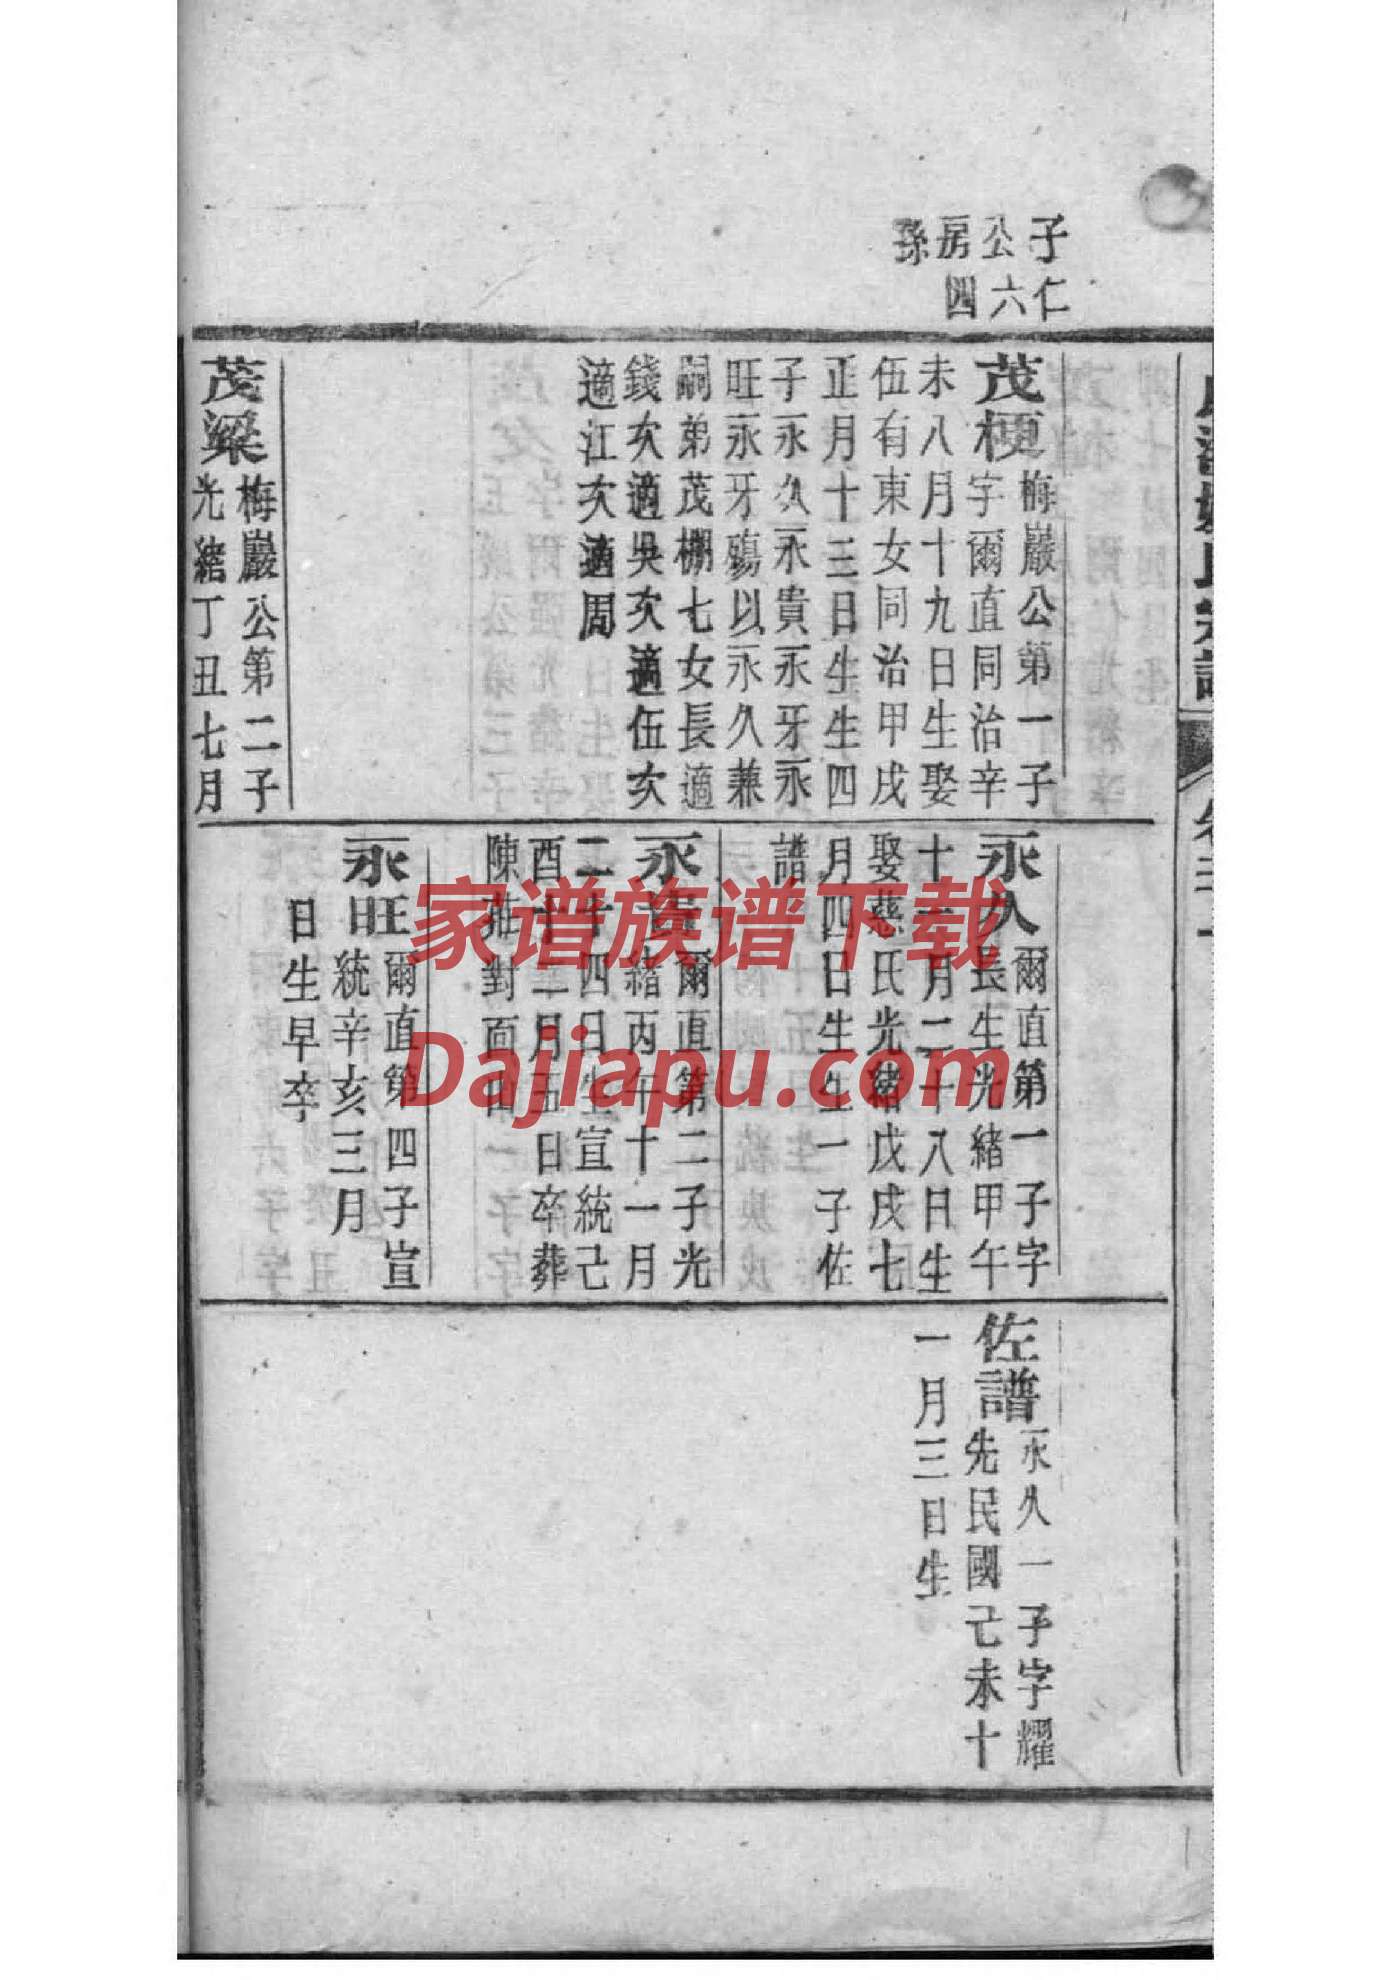 子仁
公六
房四
孫
茂梗
梅巖公第一子
字爾直同治辛
未八月十九日生娶
伍有東女同治甲戌
正月十三日生生四
子永久永貴永牙永
旺永牙殤以永久兼
嗣弟茂棚七女長適
錢次適吳次適伍次
適江次適周
茂梁
梅巖公第二子
光緒丁丑七月
永久
爾直第一子字
長生光緒甲午
十二月二十八日生
娶慈氏光緒戊戌七
月四日生生一子佐
譜
永貴
爾直第二子光
緒丙午十一月
二十四日生宣統己
酉十二月五日卒葬
陳 對面田
永旺
爾直第四子宣
統辛亥三月
日生早卒
佐譜
永久一子字耀
先民國己未十
一月三日生
氏宗譜
家谱族谱下载
Dajiapu.com